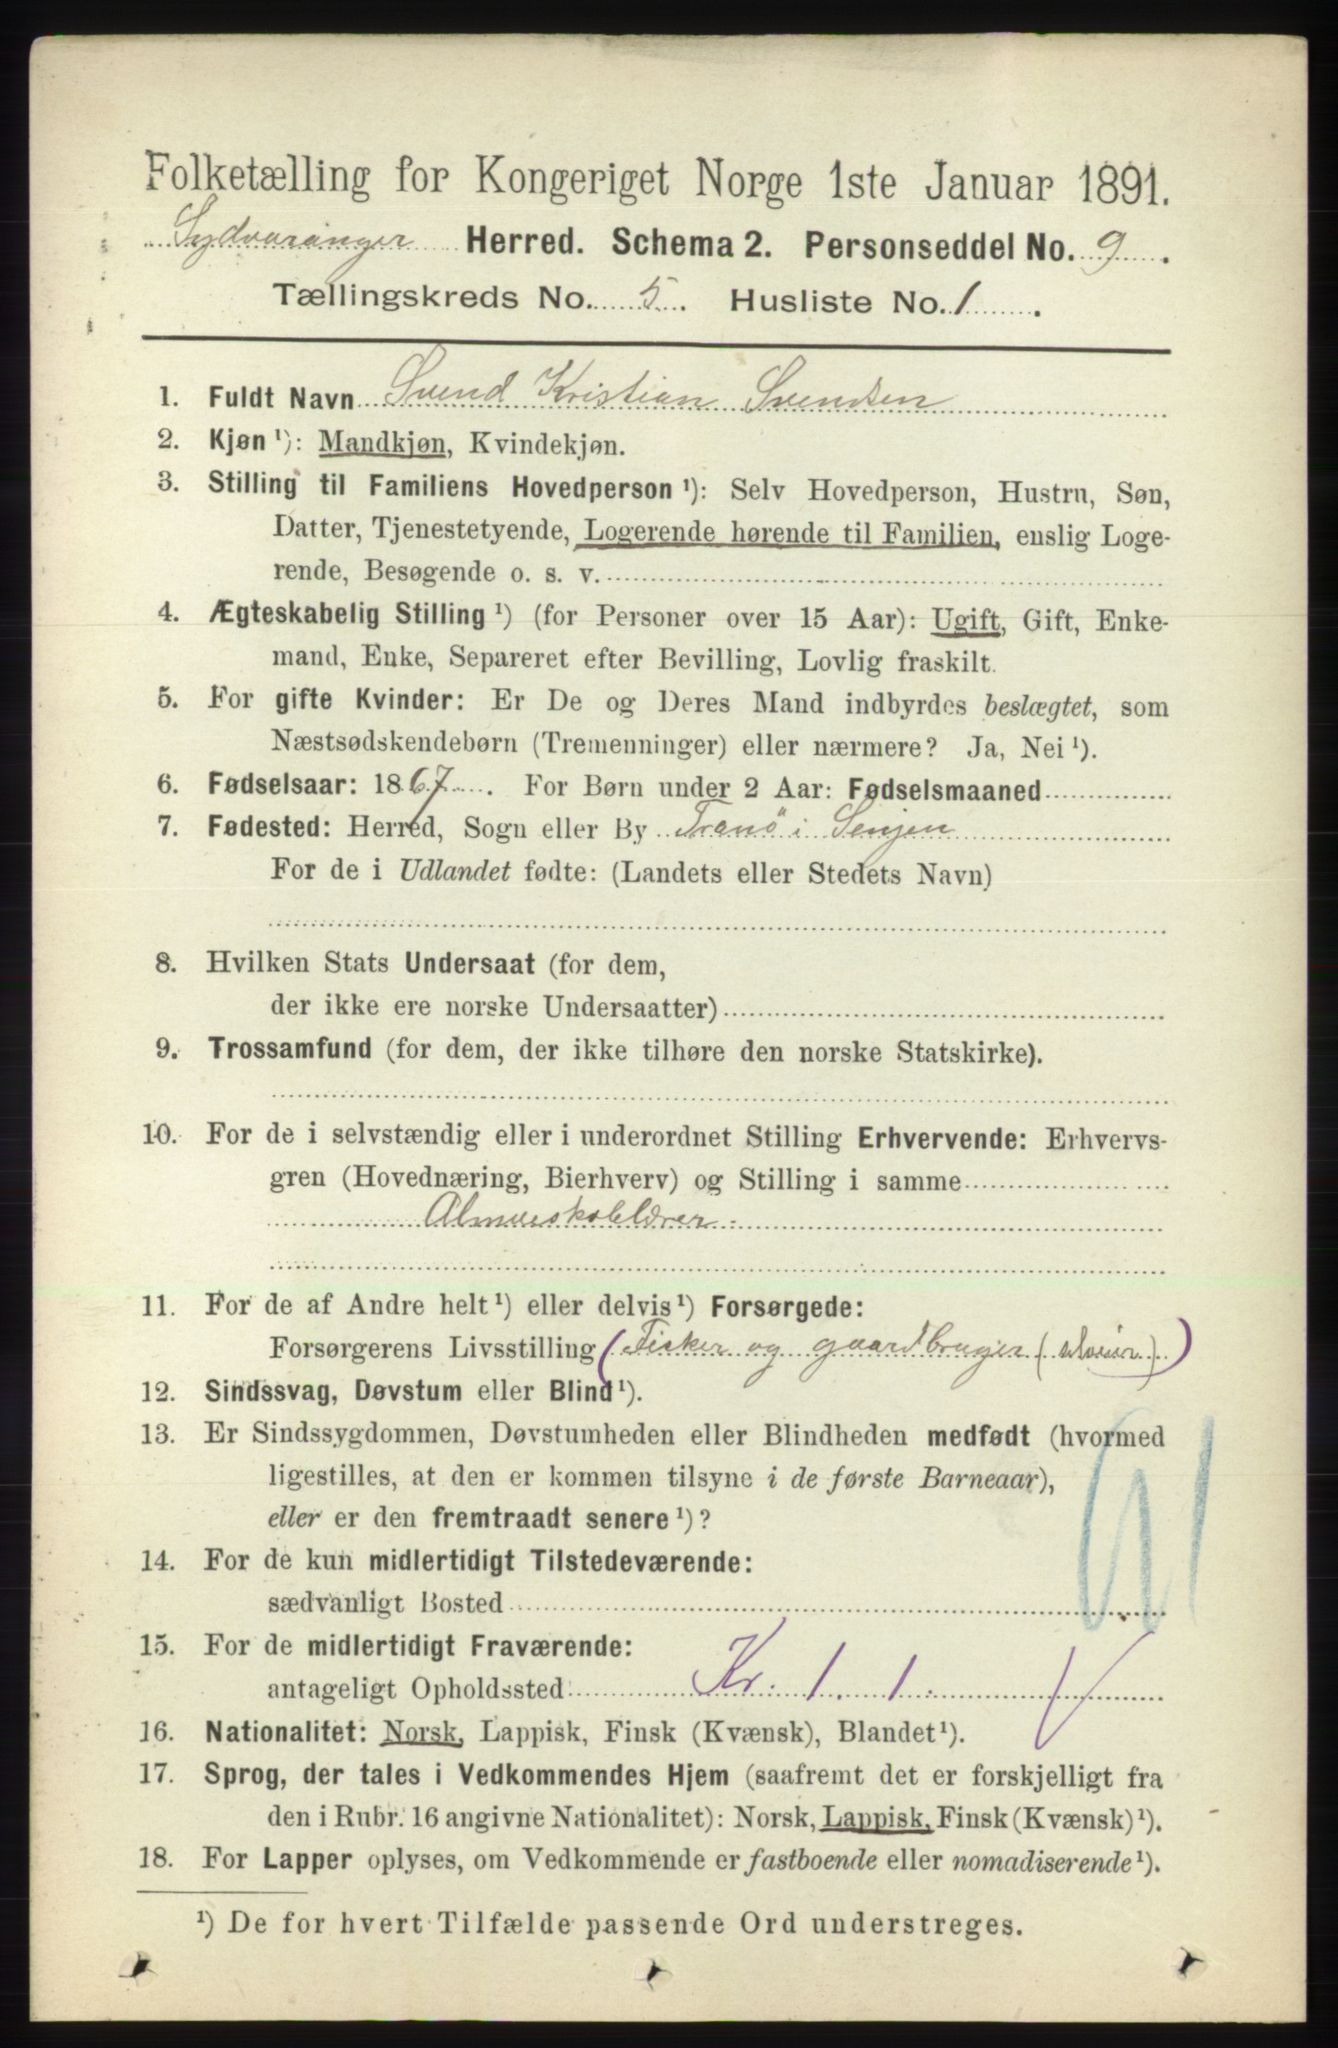 Folketælling for Kongeriget Norge 1ste Januar 1891.
Sydvaranger Herred. Schema 2. Personseddel No. 9.
Tællingskreds No. 5. Husliste No. 1.
1. Fuldt Navn Svend Kristian Svendsen
2. Kjøn ¹): Mandkjøn, Kvindekjøn.
3. Stilling til Familiens Hovedperson ¹): Selv Hovedperson, Hustru, Søn,
Datter, Tjenestetyende, Logerende hørende til Familien, enslig Loge-
rende, Besøgende o. s. v.
4. Ægteskabelig Stilling ¹) (for Personer over 15 Aar): Ugift, Gift, Enke-
mand, Enke, Separeret efter Bevilling, Lovlig fraskilt.
5. For gifte Kvinder: Er De og Deres Mand indbyrdes beslægtet, som
Næstsødskendebørn (Tremenninger) eller nærmere? Ja, Nei ¹).
6. Fødselsaar: 1867. For Børn under 2 Aar: Fødselsmaaned
7. Fødested: Herred, Sogn eller By Tranö i Senjen
For de i Udlandet fødte: (Landets eller Stedets Navn)
8. Hvilken Stats Undersaat (for dem,
der ikke ere norske Undersaatter)
9. Trossamfund (for dem, der ikke tilhøre den norske Statskirke).
10. For de i selvstændig eller i underordnet Stilling Erhvervende: Erhvervs-
gren (Hovednæring, Bierhverv) og Stilling i samme
Almueskolelærer.
11. For de af Andre helt ¹) eller delvis ¹) Forsørgede:
Forsørgerens Livsstilling (Fisker og gaardbruger
12. Sindssvag, Døvstum eller Blind ¹).
13. Er Sindssygdommen, Døvstumheden eller Blindheden medfødt (hvormed
ligestilles, at den er kommen tilsyne i de første Barneaar),
eller er den fremtraadt senere ¹)?
14. For de kun midlertidigt Tilstedeværende:
sædvanligt Bosted
15. For de midlertidigt Fraværende:
antageligt Opholdssted Kr. 1. 1.
16. Nationalitet: Norsk, Lappisk, Finsk (Kvænsk), Blandet ¹).
17. Sprog, der tales i Vedkommendes Hjem (saafremt det er forskjelligt fra
den i Rubr. 16 angivne Nationalitet): Norsk, Lappisk, Finsk (Kvænsk) ¹).
18. For Lapper oplyses, om Vedkommende er fastboende eller nomadiserende ¹).
¹) De for hvert Tilfælde passende Ord understreges.